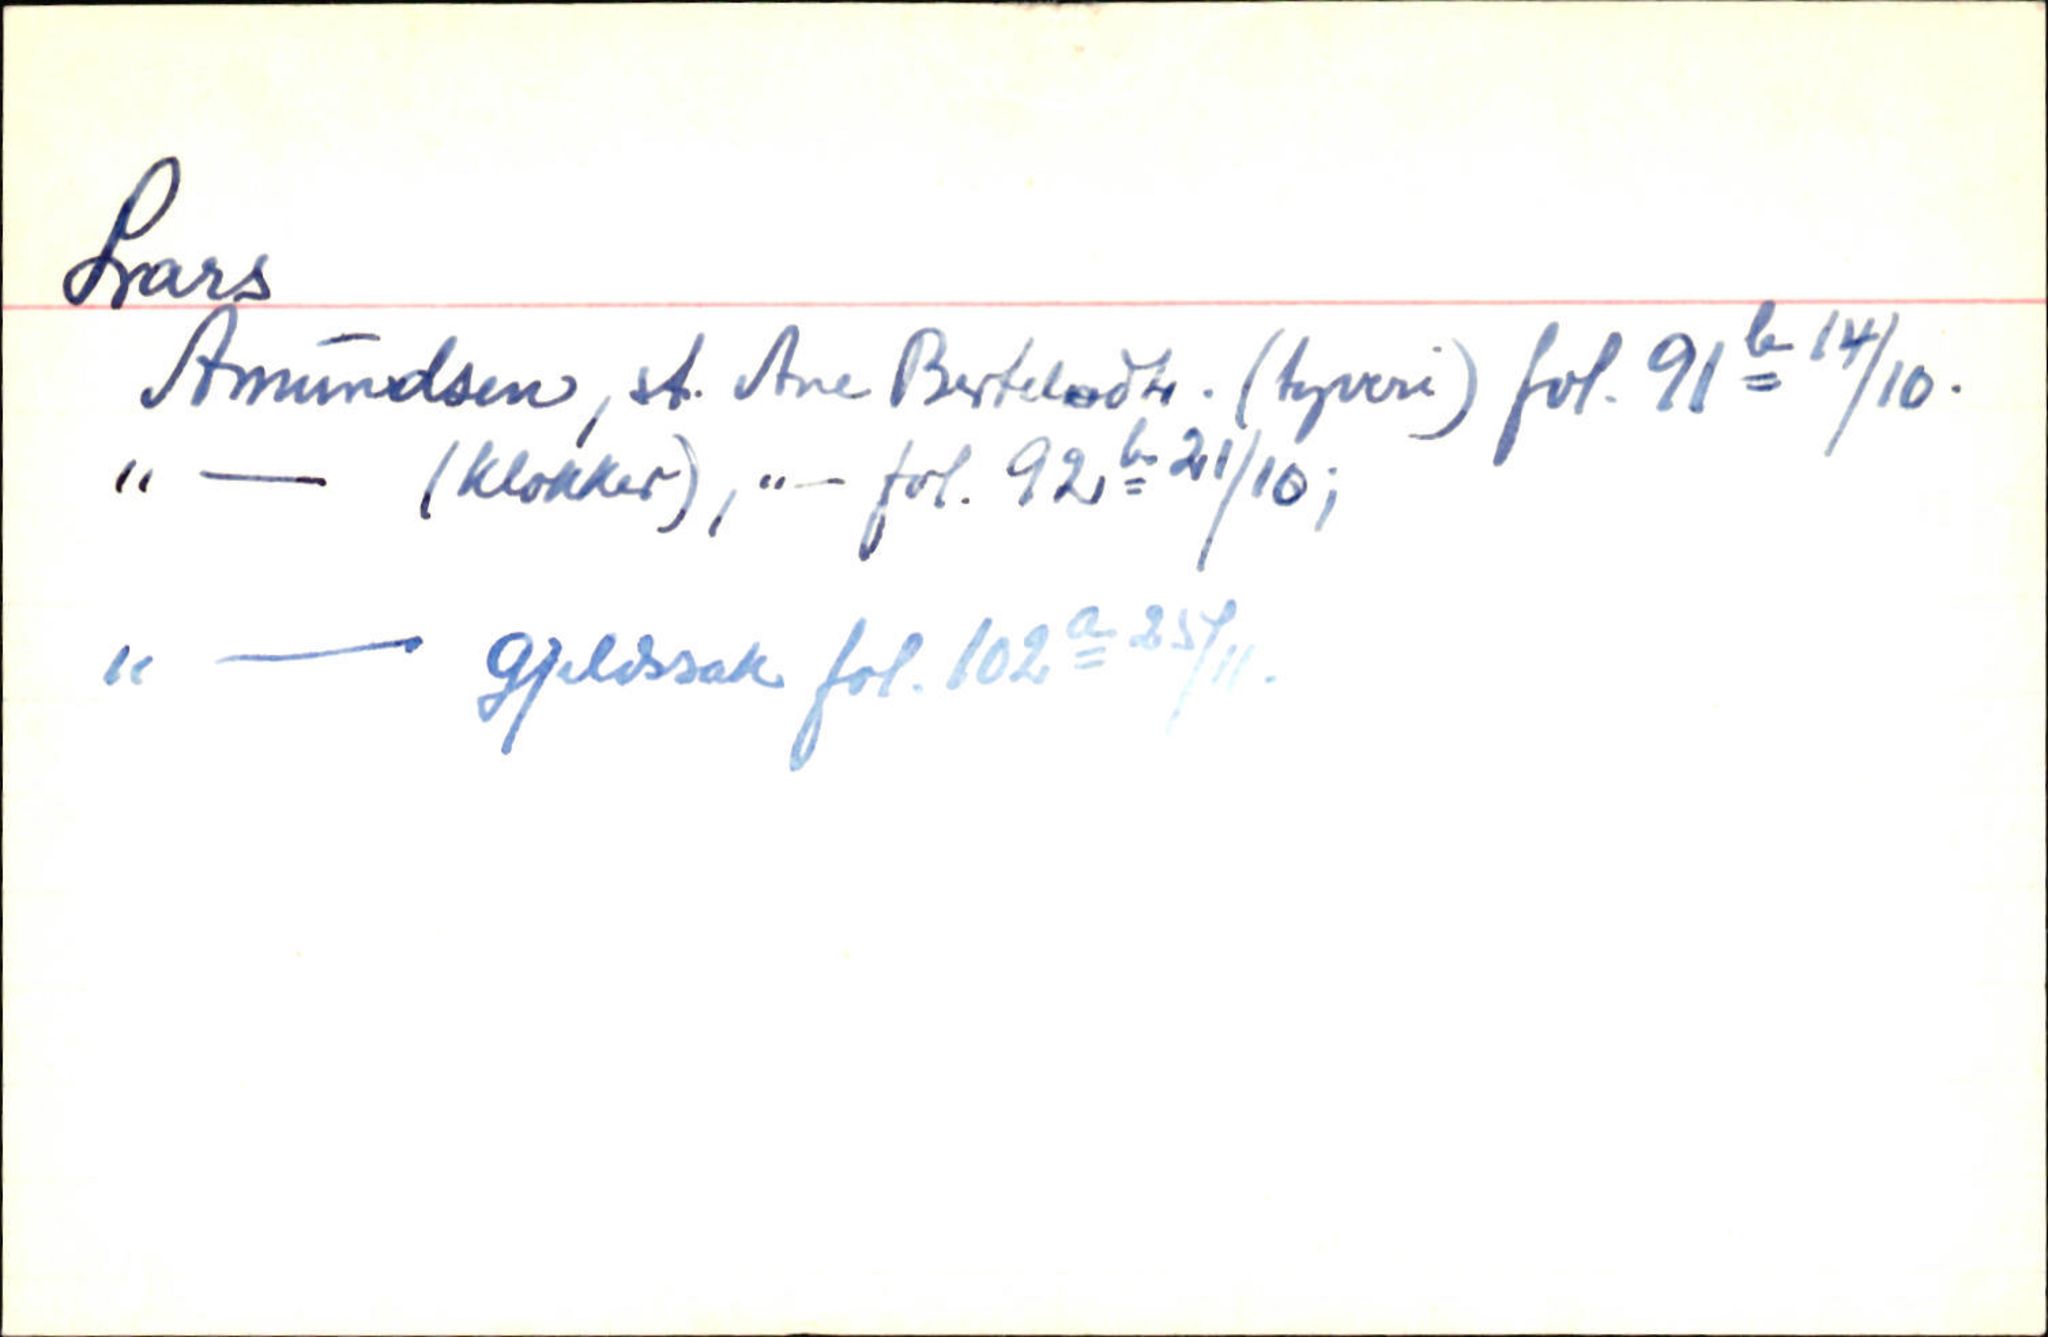 Lars
Amundsen, st. Ane Bertelsdtr. (tyveri) fol. 91ᵇ 14/10.
" — (klokker), "— fol. 92ᵇ 21/10;
" — Gjeldssak fol. 102ᵃ 25/11.